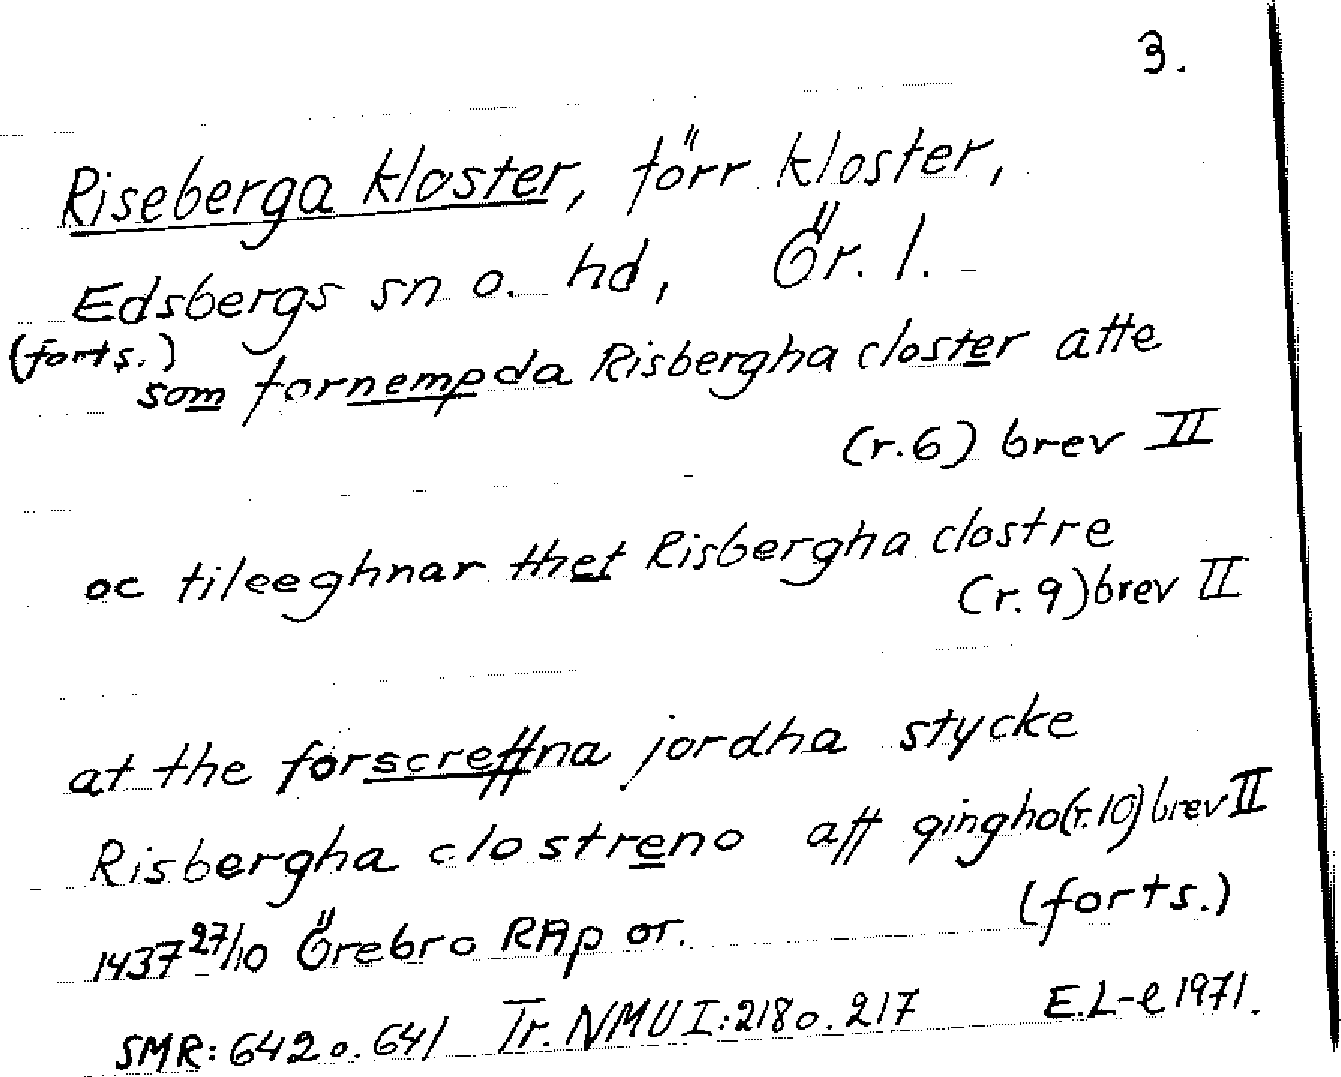 3.
Riseberga kloster, förr kloster,
Edsbergs sn o. hd, Ör. l.
(forts.)
som fornempda Risbergha closter atte
(r.6) brev II
oc tileeghnar thet Risbergha clostre
(r.9) brev II
at the forscreffna jordha stycke
Risbergha clostreno aff gingho (r.10) brev II
(forts.)
1437 27/10 Örebro RAp or.
SMR: 642 o. 641 Tr. NMU I: 218 o. 217 E.L-e 1971.